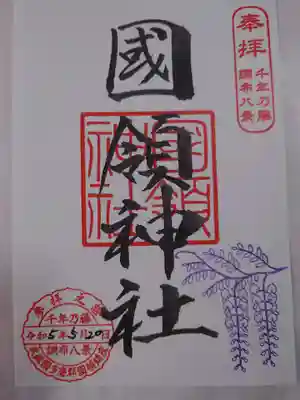 奉拝
千年乃藤
調布八景
國領神社
國領神社
千年乃藤
令和5年5月20日
調布八景